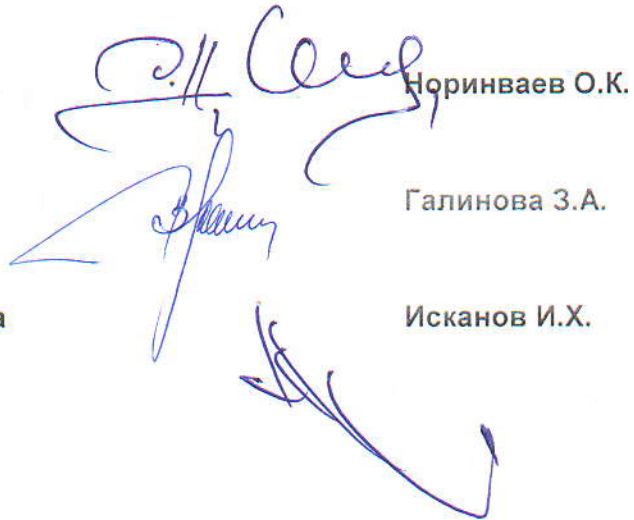 Норинваев О.К.
Галинова З.А.
а Исканов И.Х.